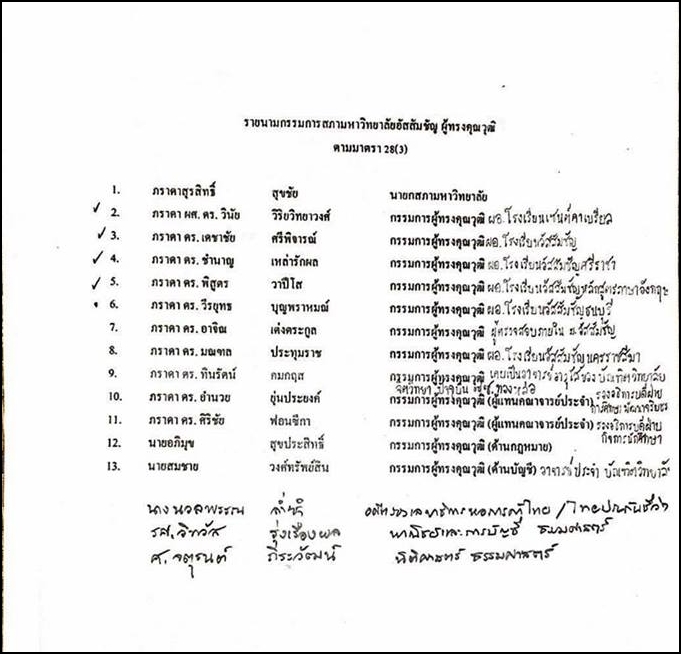 รายนามกรรมการสภามหาวิทยาลัยอัสสัมชัญ ผู้ทรงคุณวุฒิ
ตามมาตรา 28(3)
1. ภราดาสุรสิทธิ์ สุขชัย นายกสภามหาวิทยาลัย
2. ภราดา ผศ. ดร. วินัย วิริยวิทยาวงศ์ กรรมการผู้ทรงคุณวุฒิ ผอ. โรงเรียนเซนต์คาเบรียล
3. ภราดา ดร. เดชาชัย ศรีพิจารณ์ กรรมการผู้ทรงคุณวุฒิ ผอ. โรงเรียนอัสสัมชัญ
4. ภราดา ดร. ชำนาญ เหล่ารักผล กรรมการผู้ทรงคุณวุฒิ ผอ. โรงเรียนอัสสัมชัญศรีราชา
5. ภราดา ดร. พิสูตร วาปีโส กรรมการผู้ทรงคุณวุฒิ ผอ. โรงเรียนอัสสัมชัญหลักสูตรภาษาอังกฤษ
6. ภราดา ดร. วีรยุทธ บุญพราหมณ์ กรรมการผู้ทรงคุณวุฒิ ผอ. โรงเรียนอัสสัมชัญธนบุรี
7. ภราดา ดร. อาจิณ เต่งตระกูล กรรมการผู้ทรงคุณวุฒิ ผู้ตรวจสอบภายใน ม. อัสสัมชัญ
8. ภราดา ดร. มณฑล ประทุมราช กรรมการผู้ทรงคุณวุฒิ ผอ. โรงเรียนอัสสัมชัญนครราชสีมา
9. ภราดา ดร. ทินรัตน์ คมกฤส กรรมการผู้ทรงคุณวุฒิ เคยเป็นอาจารย์อาวุโสของบัณฑิตวิทยาลัย
จิตวิทยา ปัจจุบัน ทองหล่อ
10. ภราดา ดร. อำนวย ยุ่นประยงค์ กรรมการผู้ทรงคุณวุฒิ (ผู้แทนคณาจารย์ประจำ) รองอธิการบดีฝ่าย
11. ภราดา ดร. ศิริชัย ฟอนซีกา กรรมการผู้ทรงคุณวุฒิ (ผู้แทนคณาจารย์ประจำ) รองอธิการบดีฝ่าย
กิจการนักศึกษา
12. นายอภิมุข สุขประสิทธิ์ กรรมการผู้ทรงคุณวุฒิ (ด้านกฎหมาย)
13. นายสมชาย วงศ์ทรัพย์สิน กรรมการผู้ทรงคุณวุฒิ (ด้านบัญชี) อาจารย์ประจำ บัณฑิตวิทยาลัย
นางนวลพรรณ ล่ำซำ หอการค้าไทย / ไทยประกันชีวิต
รศ. วิทวัส รุ่งเรืองผล พาณิชย์และการบัญชี ธรรมศาสตร์
ศ. จตุรนต์ ถิระวัฒน์ นิติศาสตร์ ธรรมศาสตร์